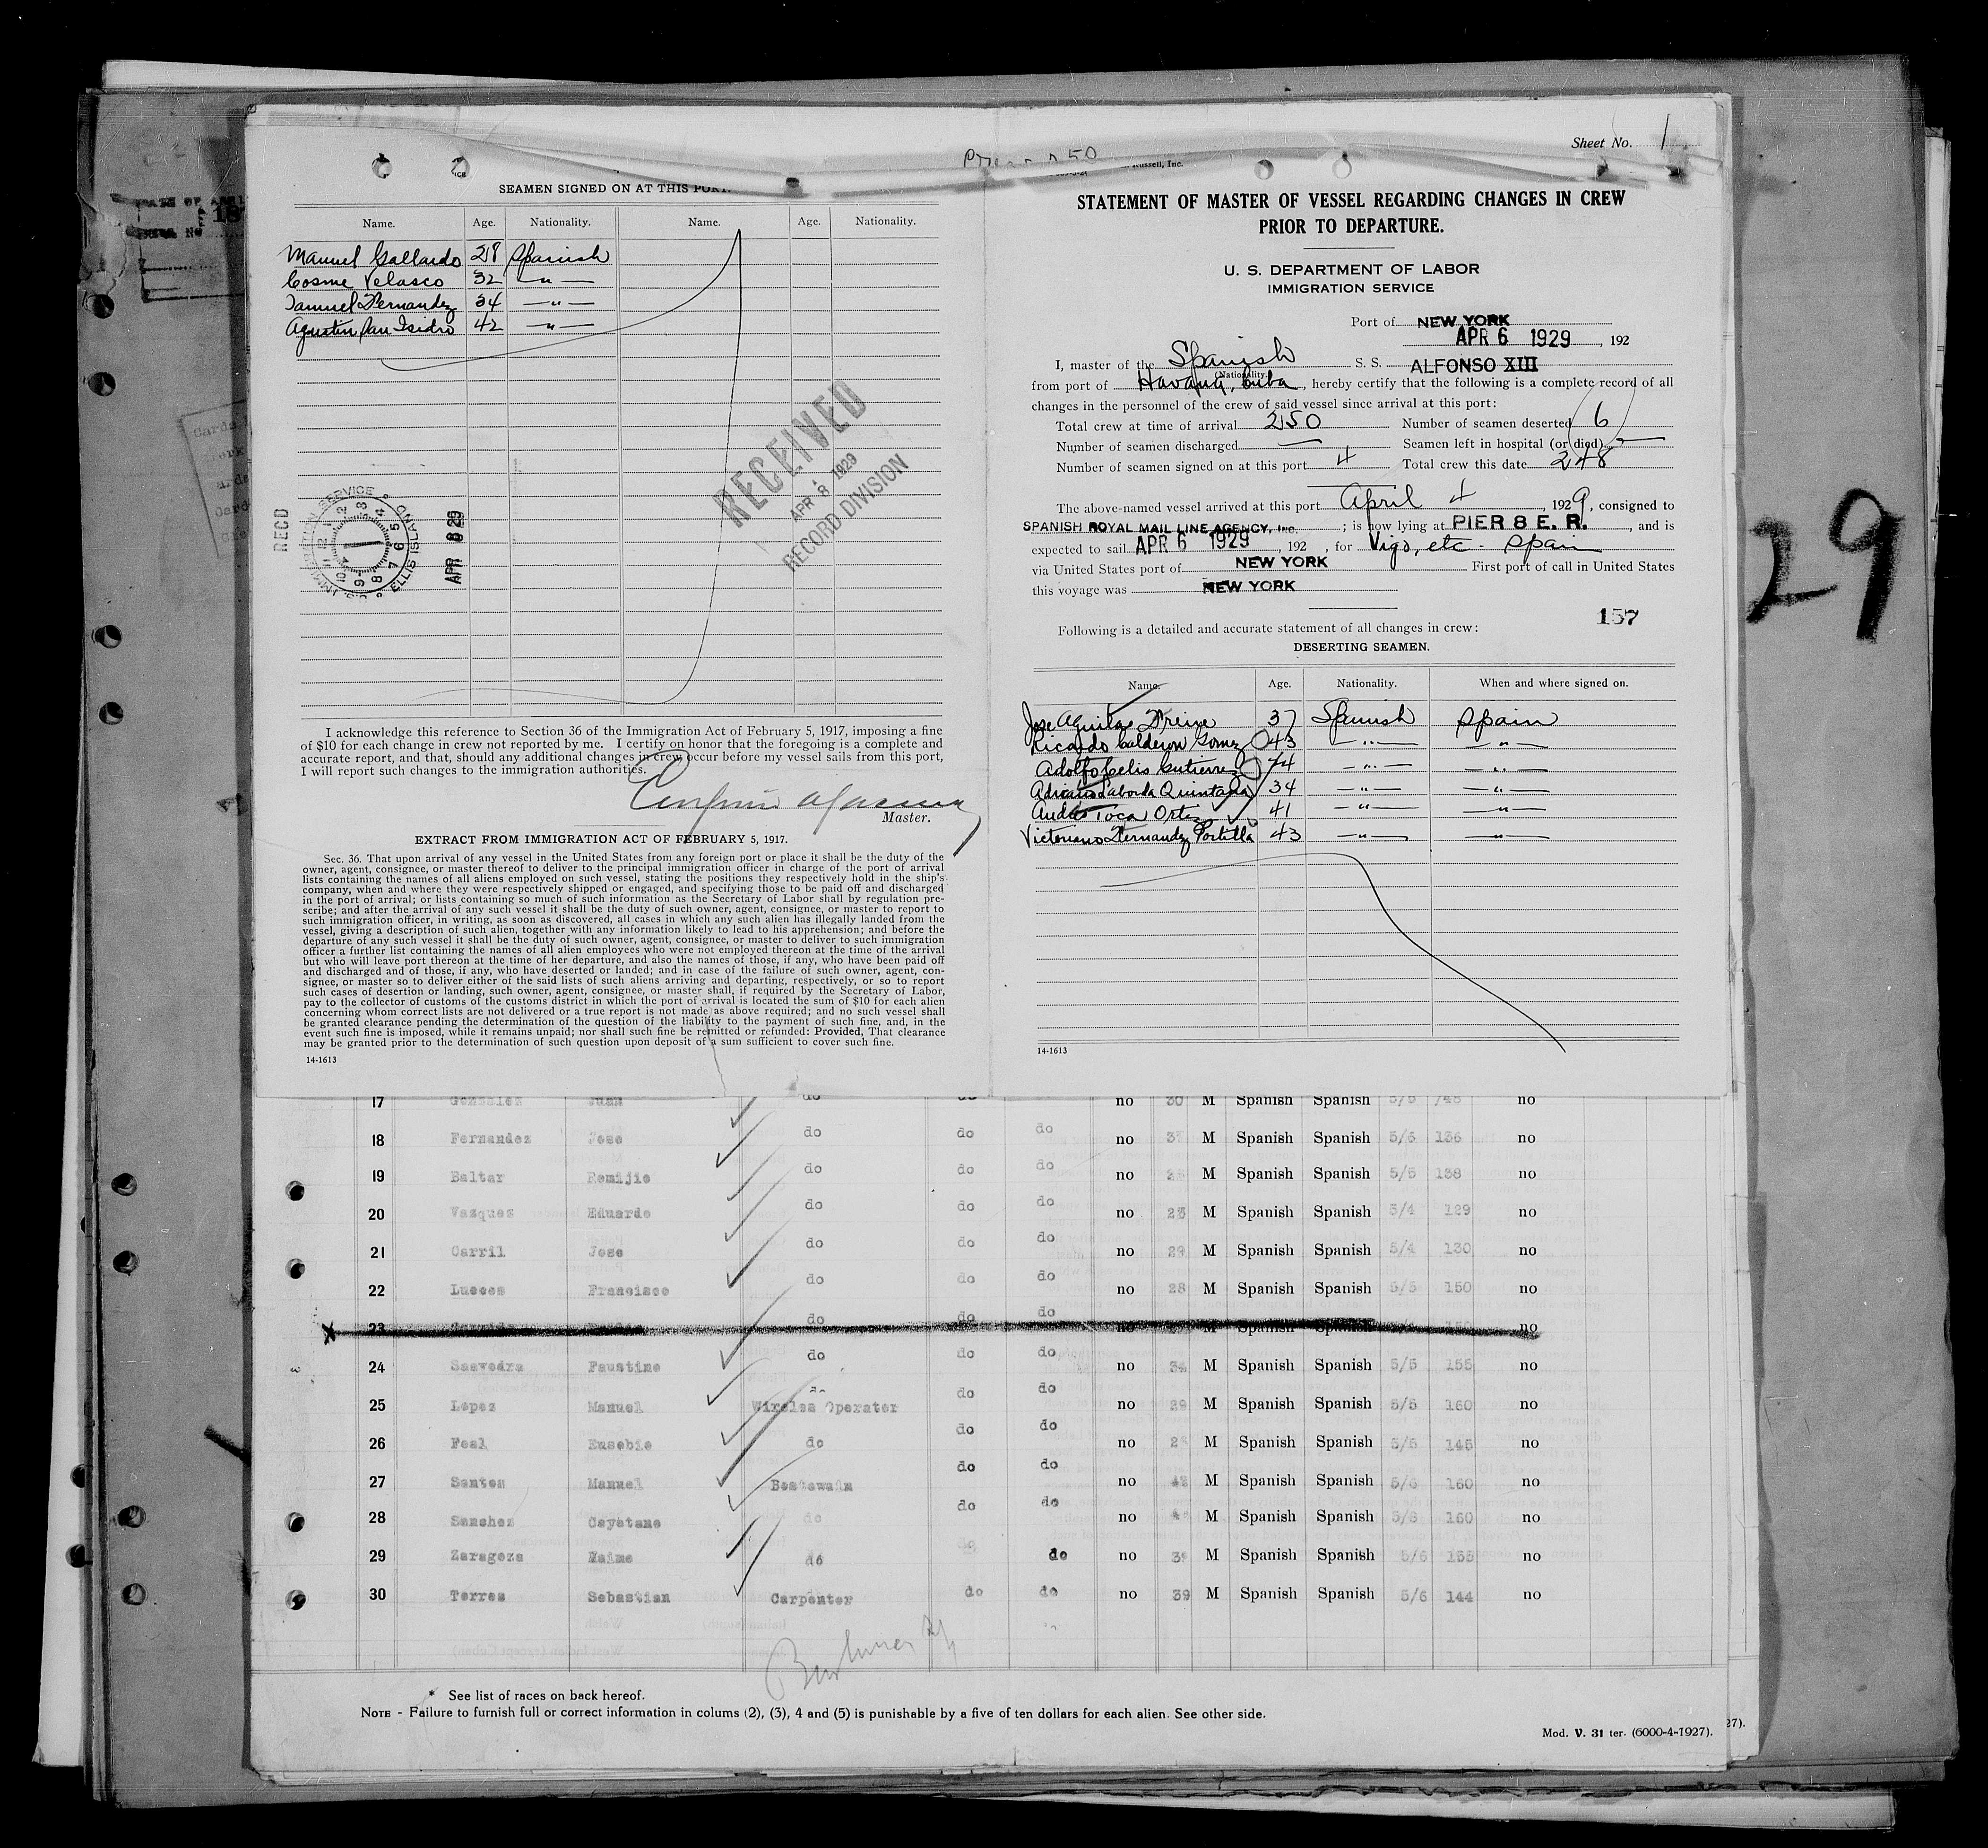 SEAMEN SIGNED ON AT THIS PORT.
Name. Age. Nationality. Name. Age. Nationality.
Manuel Gallardo 28 Spanish
Cosme Velasco 32 — " —
Samuel Fernandez 34 — " —
Agustin San Isidro 42 — " —
RECEIVED
APR 8 1929
RECORD DIVISION
RECD
IMMIGRATION SERVICE
ELLIS ISLAND
APR 8 29
I acknowledge this reference to Section 36 of the Immigration Act of February 5, 1917, imposing a fine
of $10 for each change in crew not reported by me. I certify on honor that the foregoing is a complete and
accurate report, and that, should any additional changes in crew occur before my vessel sails from this port,
I will report such changes to the immigration authorities.
Master.
EXTRACT FROM IMMIGRATION ACT OF FEBRUARY 5, 1917.
Sec. 36. That upon arrival of any vessel in the United States from any foreign port or place it shall be the duty of the
owner, agent, consignee, or master thereof to deliver to the principal immigration officer in charge of the port of arrival
lists containing the names of all aliens employed on such vessel, stating the positions they respectively hold in the ship's
company, when and where they were respectively shipped or engaged, and specifying those to be paid off and discharged
in the port of arrival; or lists containing so much of such information as the Secretary of Labor shall by regulation pre-
scribe; and after the arrival of any such vessel it shall be the duty of such owner, agent, consignee, or master to report to
such immigration officer, in writing, as soon as discovered, all cases in which any such alien has illegally landed from the
vessel, giving a description of such alien, together with any information likely to lead to his apprehension; and before the
departure of any such vessel it shall be the duty of such owner, agent, consignee, or master to deliver to such immigration
officer a further list containing the names of all alien employees who were not employed thereon at the time of the arrival
but who will leave port thereon at the time of her departure, and also the names of those, if any, who have been paid off
and discharged and of those, if any, who have deserted or landed; and in case of the failure of such owner, agent, con-
signee, or master so to deliver either of the said lists of such aliens arriving and departing, respectively, or so to report
such cases of desertion or landing, such owner, agent, consignee, or master shall, if required by the Secretary of Labor,
pay to the collector of customs of the customs district in which the port of arrival is located the sum of $10 for each alien
concerning whom correct lists are not delivered or a true report is not made as above required; and no such vessel shall
be granted clearance pending the determination of the question of the liability to the payment of such fine, and, in the
event such fine is imposed, while it remains unpaid; nor shall such fine be remitted or refunded: Provided, That clearance
may be granted prior to the determination of such question upon deposit of a sum sufficient to cover such fine.
14-1613
Sheet No. 1
Russell, Inc.
STATEMENT OF MASTER OF VESSEL REGARDING CHANGES IN CREW
PRIOR TO DEPARTURE.
U. S. DEPARTMENT OF LABOR
IMMIGRATION SERVICE
Port of NEW YORK
APR 6 1929, 192
I, master of the Spanish S. S. ALFONSO XIII
(Nationality.)
from port of Havana, Cuba, hereby certify that the following is a complete record of all
changes in the personnel of the crew of said vessel since arrival at this port:
Total crew at time of arrival 250 Number of seamen deserted 6
Number of seamen discharged — Seamen left in hospital (or died) —
Number of seamen signed on at this port 4 Total crew this date 248
The above-named vessel arrived at this port April 4, 1929, consigned to
SPANISH ROYAL MAIL LINE AGENCY, Inc. ; is now lying at PIER 8 E. R., and is
expected to sail APR 6 1929, 192 , for Vigo, etc. Spain
via United States port of NEW YORK First port of call in United States
this voyage was NEW YORK
157
29
Following is a detailed and accurate statement of all changes in crew:
DESERTING SEAMEN.
Name. Age. Nationality. When and where signed on.
Jose Aguilar Freire 37 Spanish Spain
Ricardo Calderon Gomez 43 — " — — " —
Adolfo Gutierrez 74 — " — — " —
Adriano Laborda Quintana 34 — " — — " —
Andres Toca Ortiz 41 — " — — " —
Victoriano Fernandez Portilla 43 — " — — " —
14-1613
17 Gonzalez Juan do do no 30 M Spanish Spanish 5/5 145 no
18 Fernandez Jose do do do no M Spanish Spanish 5/6 156 no
19 Baltar Remijio do do do no M Spanish Spanish 5/5 138 no
20 Vazquez Eduardo do do do no 23 M Spanish Spanish 5/4 129 no
21 Carril Jose do do do no 29 M Spanish Spanish 5/4 130 no
22 Lucces Francisco do do do no 28 M Spanish Spanish 5/5 150 no
23 do do do no M Spanish Spanish 150 no
24 Saavedra Faustino do do do no 34 M Spanish Spanish 5/5 155 no
25 Lopez Manuel Wireles Operater do do no 29 M Spanish Spanish 5/5 160 no
26 Feal Eusebio do do do no M Spanish Spanish 5/5 145 no
27 Santos Manuel Boatswain do do no 42 M Spanish Spanish 5/6 160 no
28 Sanchez Cayetano do do do no M Spanish Spanish 5/6 160 no
29 Zaragoza Jaime do do do no M Spanish Spanish 5/6 155 no
30 Torres Sebastian Carpenter do do no 39 M Spanish Spanish 5/6 144 no
* See list of races on back hereof.
NOTE - Failure to furnish full or correct information in colums (2), (3), 4 and (5) is punishable by a five of ten dollars for each alien. See other side.
Mod. V. 31 ter. (6000-4-1927).
27).